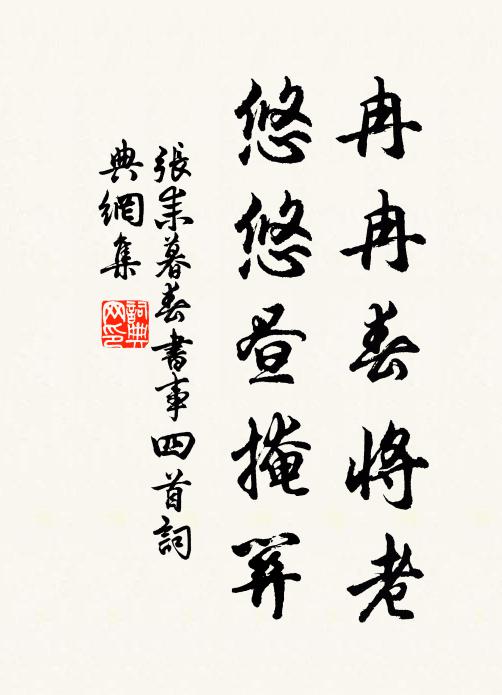 冉冉春將老
悠悠昼掩關
張耒暮春書事四首詞
典網集
詞典網印